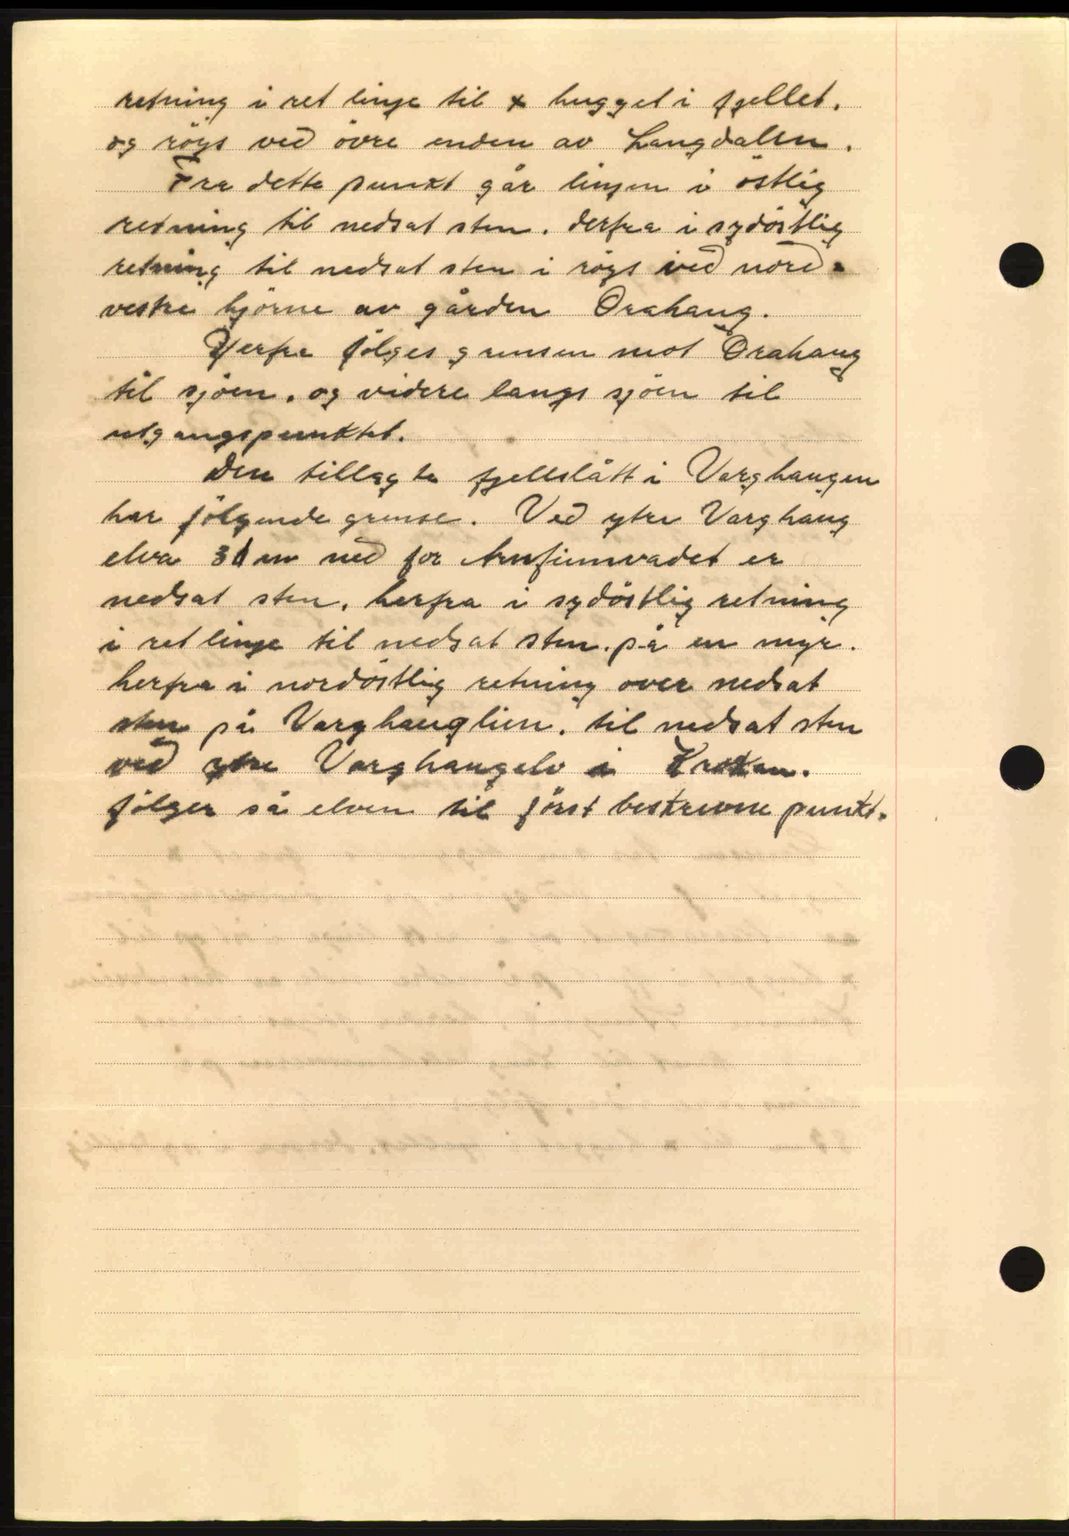 retning i ret linje til x hugget i fjellet.
og röys ved övre enden av Langdalen.
Fra dette punkt går linjen i östlig
retning til nedsat sten. derfra i sydöstlig
retning til nedsat sten i röys ved nord-
vestre hjörne av gården Orahaug.
Herfra fölges grensen mot Orahaug
til sjöen. og videre langs sjöen til
utgangspunktet.
Den tillagte fjellslått i Varghaugen
har fölgende grense. Ved ytre Varghaug
elva 30 m ned for Arnfinnvadet er
nedsat sten. herfra i sydöstlig retning
i ret linje til nedsat sten. på en myr.
herfra i nordöstlig retning over nedsat
sten på Varghauglien. til nedsat sten
ved ytre Varghaugelv i Kroken.
fölger så elven til förstbeskrevne punkt.